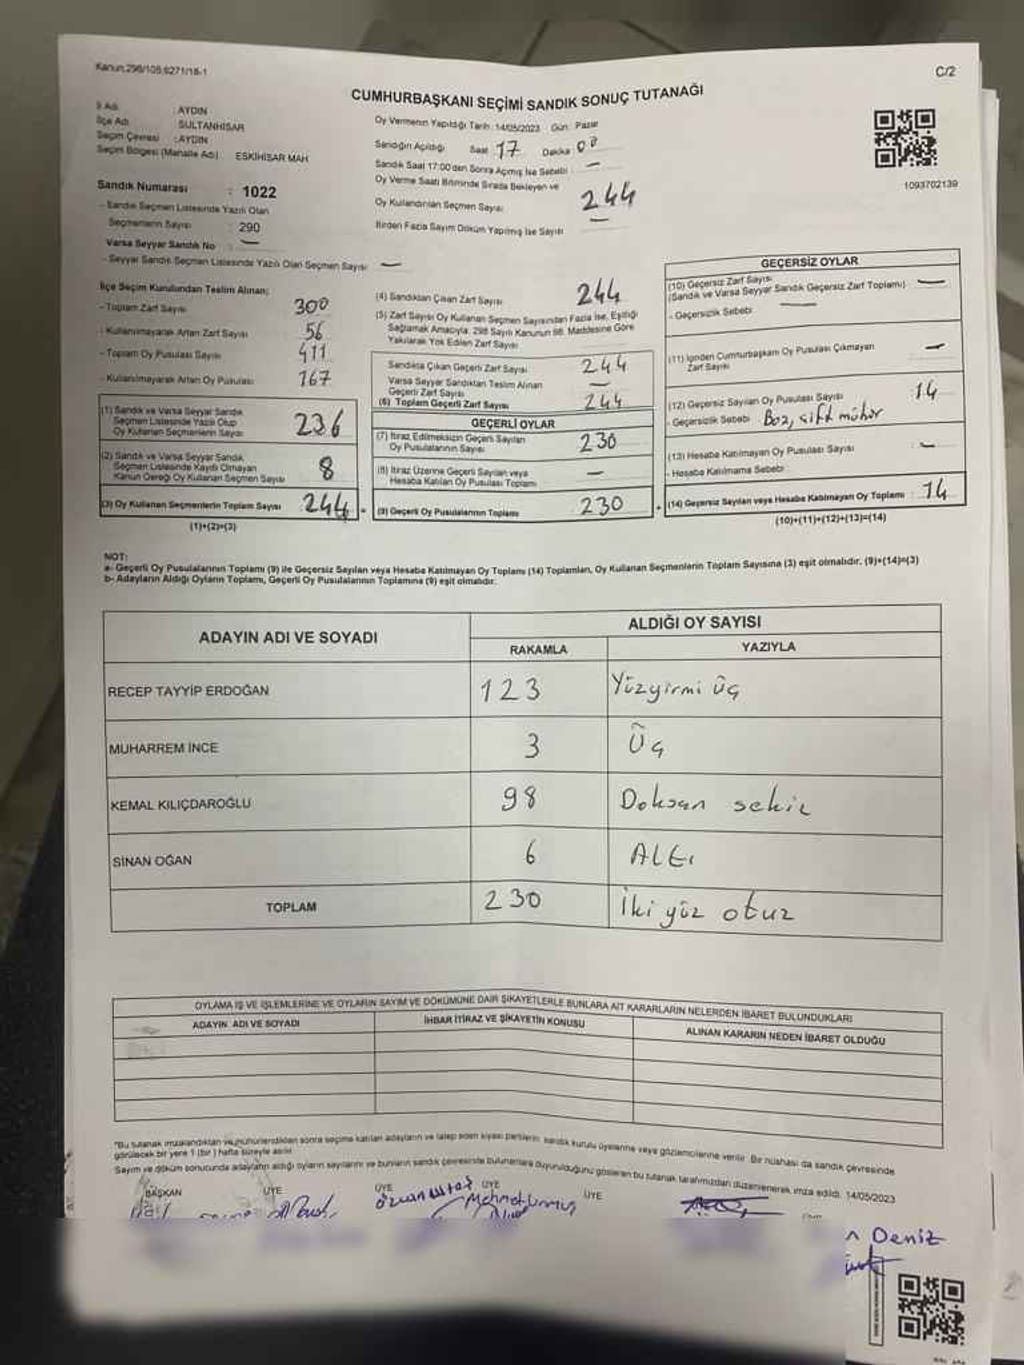 Kanun:298/105,6271/18-1
C/2
CUMHURBAŞKANI SEÇİMİ SANDIK SONUÇ TUTANAĞI
İl Adı : AYDIN
İlçe Adı : SULTANHİSAR
Seçim Çevresi : AYDIN
Seçim Bölgesi (Mahalle Adı) : ESKİHİSAR MAH
Sandık Numarası : 1022
- Sandık Seçmen Listesinde Yazılı Olan
Seçmenlerin Sayısı : 290
Varsa Seyyar Sandık No : —
- Seyyar Sandık Seçmen Listesinde Yazılı Olan Seçmen Sayısı —
Oy Vermenin Yapıldığı Tarih: 14/05/2023 Gün: Pazar
Sandığın Açıldığı Saat 17 Dakika 00
Sandık Saat 17:00'den Sonra Açmış İse Sebebi : —
Oy Verme Saati Bitiminde Sırada Bekleyen ve
Oy Kullandırılan Seçmen Sayısı 244
Birden Fazla Sayım Döküm Yapılmış İse Sayısı —
1093702139
İlçe Seçim Kurulundan Teslim Alınan:
- Toplam Zarf Sayısı 300
- Kullanılmayarak Artan Zarf Sayısı 56
- Toplam Oy Pusulası Sayısı 411
- Kullanılmayarak Artan Oy Pusulası 167
(1) Sandık ve Varsa Seyyar Sandık
Seçmen Listesinde Yazılı Olup
Oy Kullanan Seçmenlerin Sayısı 236
(2) Sandık ve Varsa Seyyar Sandık
Seçmen Listesinde Kayıtlı Olmayan
Kanun Gereği Oy Kullanan Seçmen Sayısı 8
(3) Oy Kullanan Seçmenlerin Toplam Sayısı 244
(1)+(2)=(3)
(4) Sandıktan Çıkan Zarf Sayısı 244
(5) Zarf Sayısı Oy Kullanan Seçmen Sayısından Fazla İse, Eşitliği
Sağlamak Amacıyla, 298 Sayılı Kanunun 98. Maddesine Göre
Yakılarak Yok Edilen Zarf Sayısı
Sandıkta Çıkan Geçerli Zarf Sayısı 244
Varsa Seyyar Sandıktan Teslim Alınan
Geçerli Zarf Sayısı —
(6) Toplam Geçerli Zarf Sayısı 244
GEÇERLİ OYLAR
(7) İtiraz Edilmeksizin Geçerli Sayılan
Oy Pusulalarının Sayısı 230
(8) İtiraz Üzerine Geçerli Sayılan veya
Hesaba Katılan Oy Pusulası Toplamı —
(9) Geçerli Oy Pusulalarının Toplamı 230
GEÇERSİZ OYLAR
(10) Geçersiz Zarf Sayısı
(Sandık ve Varsa Seyyar Sandık Geçersiz Zarf Toplamı) : —
- Geçersizlik Sebebi : —
(11) İçinden Cumhurbaşkanı Oy Pusulası Çıkmayan
Zarf Sayısı —
(12) Geçersiz Sayılan Oy Pusulası Sayısı : 14
- Geçersizlik Sebebi Boş, çift mühür
(13) Hesaba Katılmayan Oy Pusulası Sayısı : —
- Hesaba Katılmama Sebebi
(14) Geçersiz Sayılan veya Hesaba Katılmayan Oy Toplamı : 14
(10)+(11)+(12)+(13)=(14)
NOT:
a- Geçerli Oy Pusulalarının Toplamı (9) ile Geçersiz Sayılan veya Hesaba Katılmayan Oy Toplamı (14) Toplamları, Oy Kullanan Seçmenlerin Toplam Sayısına (3) eşit olmalıdır. (9)+(14)=(3)
b- Adayların Aldığı Oyların Toplamı, Geçerli Oy Pusulalarının Toplamına (9) eşit olmalıdır.
ADAYIN ADI VE SOYADI
ALDIĞI OY SAYISI
RAKAMLA YAZIYLA
RECEP TAYYİP ERDOĞAN 123 Yüzyirmi üç
MUHARREM İNCE 3 Üç
KEMAL KILIÇDAROĞLU 98 Doksan sekiz
SİNAN OĞAN 6 Altı
TOPLAM 230 İki yüz otuz
OYLAMA İŞ VE İŞLEMLERİNE VE OYLARIN SAYIM VE DÖKÜMÜNE DAİR ŞİKAYETLERLE BUNLARA AİT KARARLARIN NELERDEN İBARET BULUNDUKLARI
ADAYIN ADI VE SOYADI İHBAR İTİRAZ VE ŞİKAYETİN KONUSU ALINAN KARARIN NEDEN İBARET OLDUĞU
*Bu tutanak imzalandıktan ve mühürlendikten sonra seçime katılan adayların ve talep eden siyasi partilerin sandık kurulu üyelerine veya gözlemcilerine verilir. Bir nüshası da sandık çevresinde
görülecek bir yere 1 (bir) hafta süreyle asılır.
Sayım ve döküm sonucunda adayların aldığı oyların sayılarını ve bunların sandık çevresinde bulunanlara duyurulduğunu gösteren bu tutanak tarafımızdan düzenlenerek imza edildi. 14/05/2023
BAŞKAN ÜYE ÜYE ÜYE ÜYE
Deniz